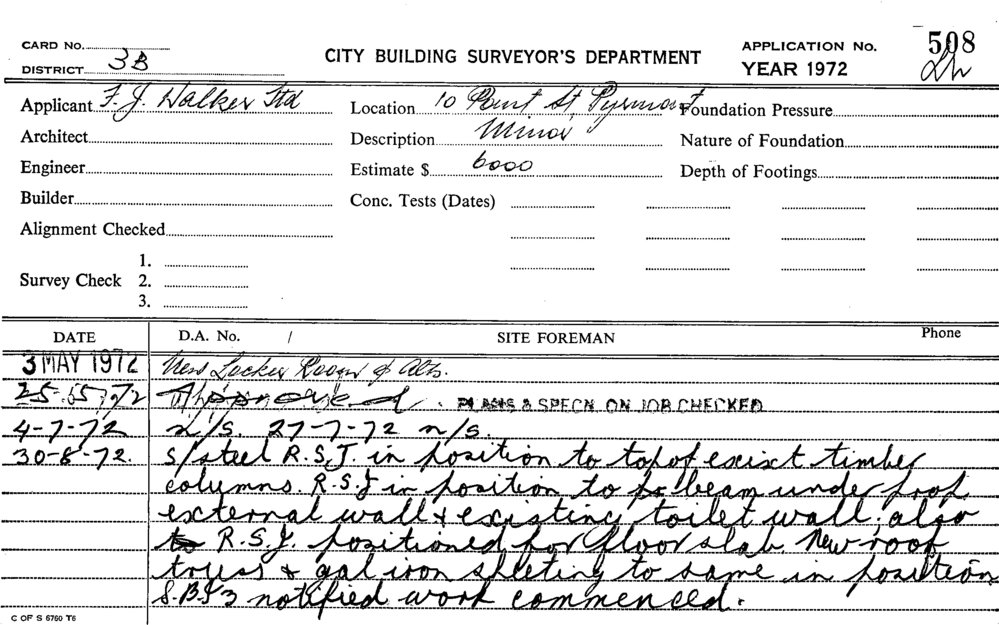 CARD No.
DISTRICT 3B
CITY BUILDING SURVEYOR'S DEPARTMENT
APPLICATION No. 508
YEAR 1972
Applicant F. J. Walker Ltd
Location 10 Point St, Pyrmont
Foundation Pressure
Architect
Description Minor
Nature of Foundation
Engineer
Estimate $ 6000
Depth of Footings
Builder
Conc. Tests (Dates)
Alignment Checked
Survey Check 1.
2.
3.
DATE D.A. No. / SITE FOREMAN Phone
3 MAY 1972 New Locker Room & Alts.
25.5.72 Approved. PLANS & SPECN. ON JOB CHECKED
4-7-72 n/s. 27-7-72 n/s.
30-8-72. S/steel R.S.J. in position to top of exist timber
columns. R.S.J in position to beam under prop.
external wall & existing toilet wall, also
to R.S.J. positioned for floor slab. New roof
truss & gal iron sheeting to same in position
S.B.S 3 notified work commenced.
C OF S 6760 T6